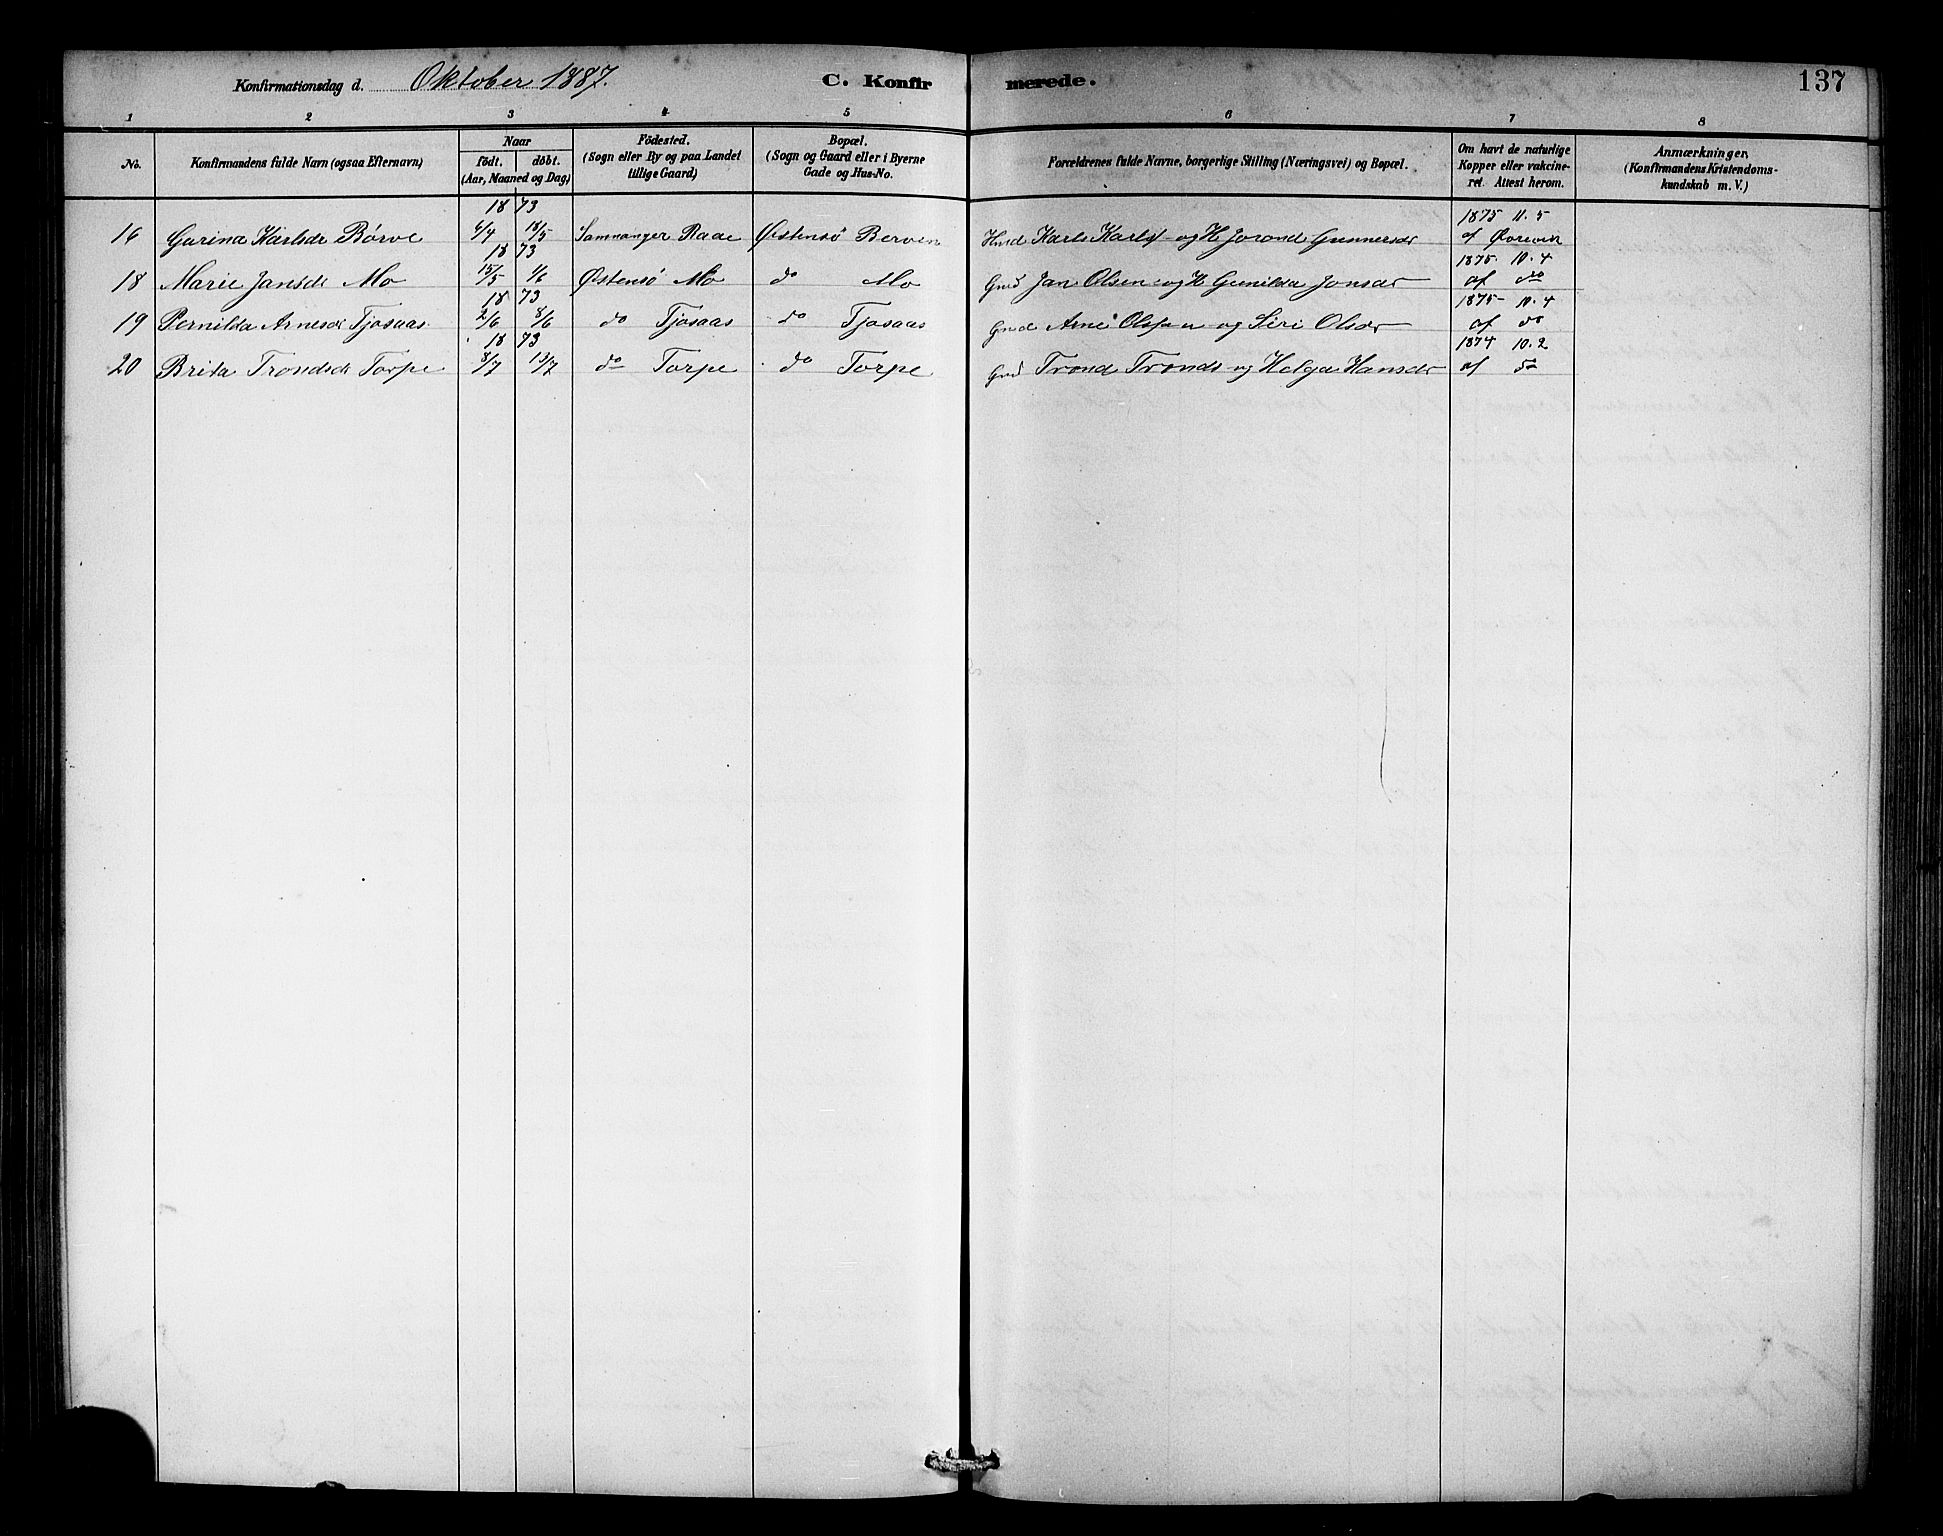 Konfirmationsdag d. Oktober 1887. C. Konfirmerede. 137
1 2 3 4 5 6 7 8
No. Konfirmandens fulde Navn (ogsaa Efternavn) Naar födt. döbt. (Aar, Maaned og Dag) Födested. (Sogn eller By og paa Landet tillige Gaard) Bopæl. (Sogn og Gaard eller i Byerne Gade og Hus-No. Forældrenes fulde Navne, borgerlige Stilling (Næringsvei) og Bopæl. Om havt de naturlige Kopper eller vakcineret. Attest herom. Anmærkninger, (Konfirmandens Kristendomskundskab m. V.)
18 73 1875 11. 5
16 Gurina Karlsdr Börve 6/4 18/5 Samnanger Raae Østensö Berven Hmd Karls Karls og H Jorand Gunnersdr af Øvrevik
18 73 1875. 10. 4
18 Marie Jansdr Mo 15/5 1/6 Østensö Mo do Mo Gmd Jan Olsen og H Gunilda Jonsdr af do
18 73 1875- 10. 4
19 Pernilda Arnesdr Tjosaas 2/6 8/6 do Tjosaas do Tjosaas Gmd Arne Olsen og Siri Olsdr af do
18 73 1874 10. 2
20 Brita Trondsdr Torpe 8/7 13/7 do Torpe do Torpe Gmd Trond Tronds og Helga Hansdr af do